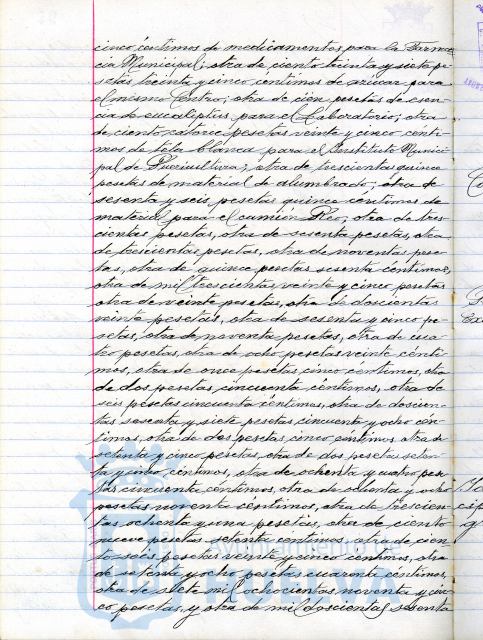 cinco céntimos de medicamentos para la Farma-
cia Municipal; otra de ciento treinta y siete pe-
setas treinta y cinco céntimos de azucar para
el mismo Centro; otra de cien pesetas de esen-
cia de eucaliptus para el Laboratorio; otra
de ciento catorce pesetas veinte y cinco cénti-
mos de tela blanca para el Instituto Munici-
pal de Puericultura; otra de trescientas quince
pesetas de material de alumbrado; otra de
sesenta y seis pesetas quince céntimos de
material para el camión Reo; otra de tres-
cientas pesetas, otra de sesenta pesetas, otra
de trescientas pesetas, otra de noventa pese-
tas, otra de quince pesetas sesenta céntimos,
otra de mil trescientas veinte y cinco pesetas
otra de veinte pesetas, otra de doscientas
veinte pesetas, otra de sesenta y cinco pe-
setas, otra de noventa pesetas, otra de cua-
tro pesetas, otra de ocho pesetas veinte cénti-
mos, otra de once pesetas cinco céntimos, otra
de dos pesetas cincuenta céntimos, otra de
seis pesetas cincuenta céntimos, otra de doscien-
tas sesenta y siete pesetas cincuenta y ocho cén-
timos, otra de dos pesetas cinco céntimos, otra de
setenta y cinco pesetas, otra de dos pesetas seten-
ta y cinco céntimos, otra de ochenta y cuatro pese-
tas cincuenta céntimos, otra de ochenta y ocho
pesetas noventa céntimos, otra de trescien-
tas ochenta y una pesetas, otra de ciento
nueve pesetas setenta céntimos, otra de cien-
to seis pesetas veinte y cinco céntimos, otra
de setenta y ocho pesetas cuarenta céntimos,
otra de siete mil ochocientas noventa y cin-
co pesetas, y otra de mil doscientas sesenta